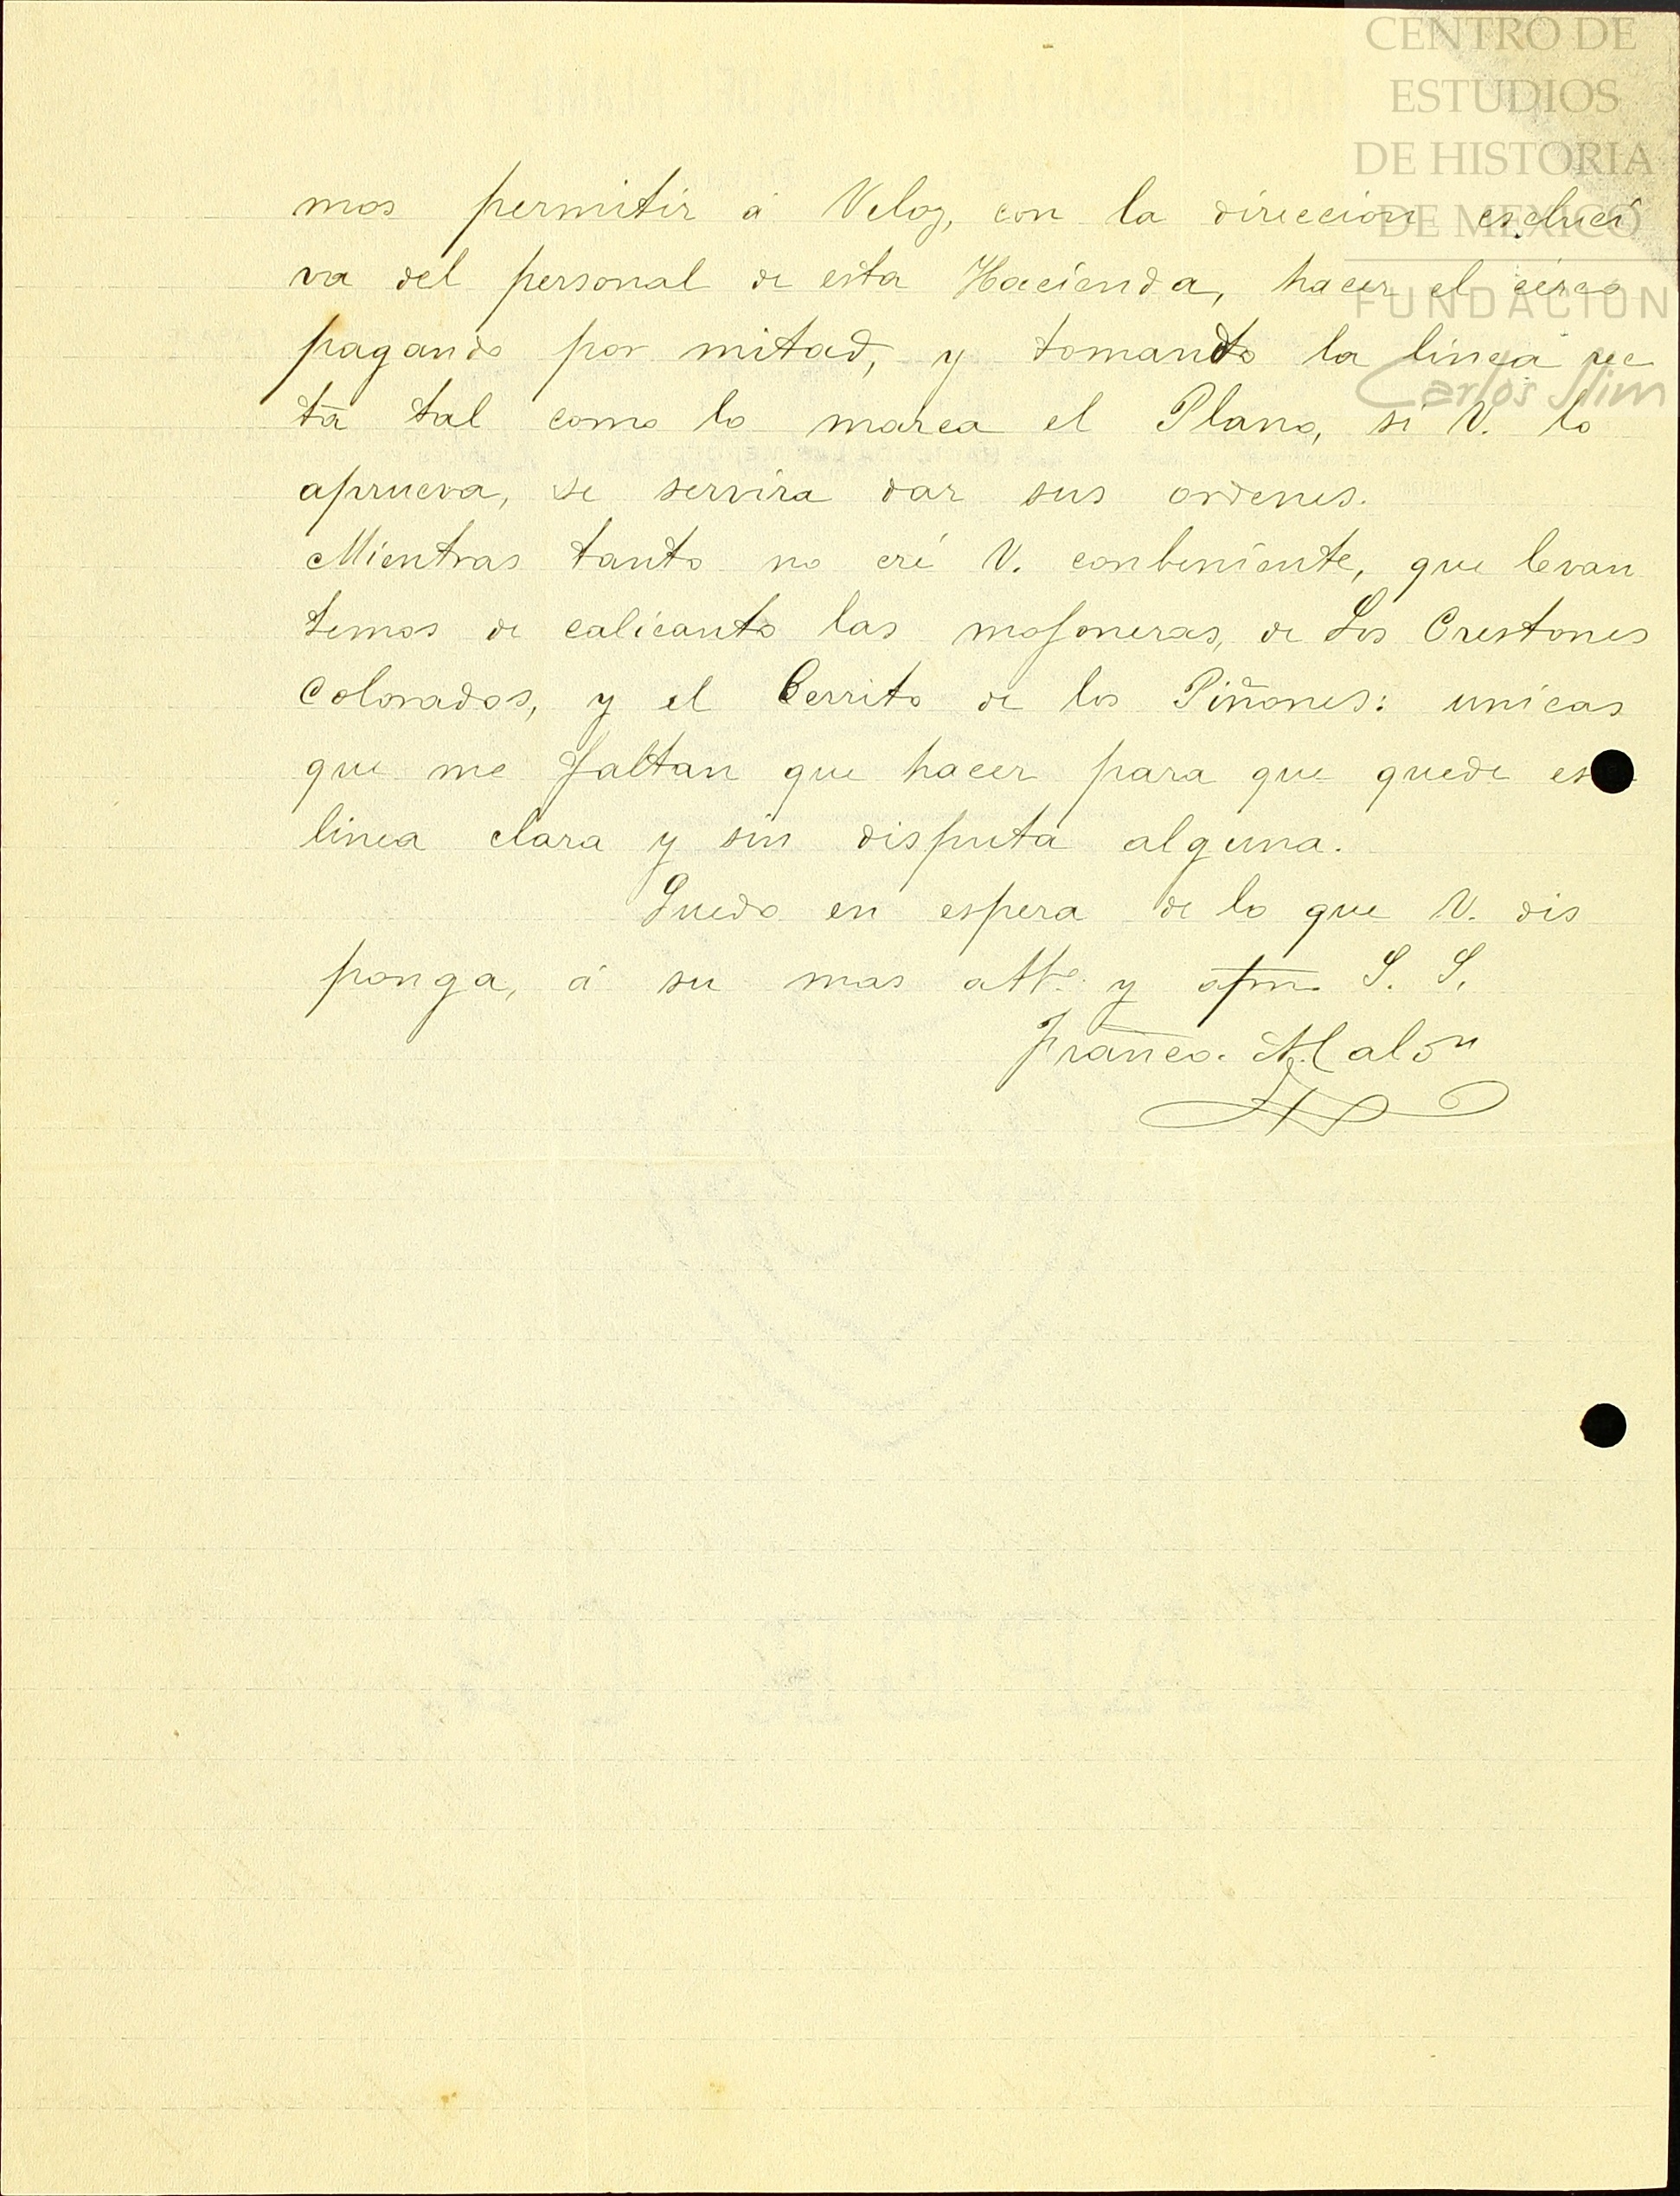 CENTRO DE
ESTUDIOS
DE HISTORIA
DE MÉXICO
FUNDACIÓN
Carlos Slim
mos permitir á Veloz, con la direccion escluci
va del personal de esta Hacienda, hacer el cerco
pagando por mitad, y tomando la linea rec
ta tal como lo marca el Plano, si V. lo
aprueva, se servira dar sus ordenes.
Mientras tanto no cré V. conbeniente, que levan
temos de calicanto las mojoneras, de Los Crestones
Colorados, y el Cerrito de los Piñones: unicas
que me faltan que hacer para que quede es
linea clara y sin disputa alguna.
Quedo en espera de lo que V. dis
ponga, á su mas atto. y afmo. S. S.
Franco. Malón